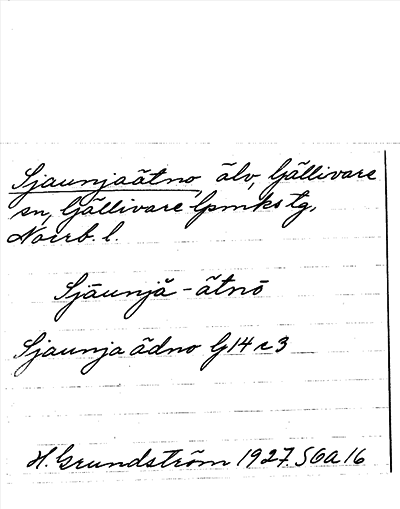 Sjaunjaätno, älv, Gällivare
sn, Gällivare lpmkstg,
Norrb. l.
Sjāunjă-ătnō
Sjaunja ädno G14 c3
H. Grundström 1927. SOA 16